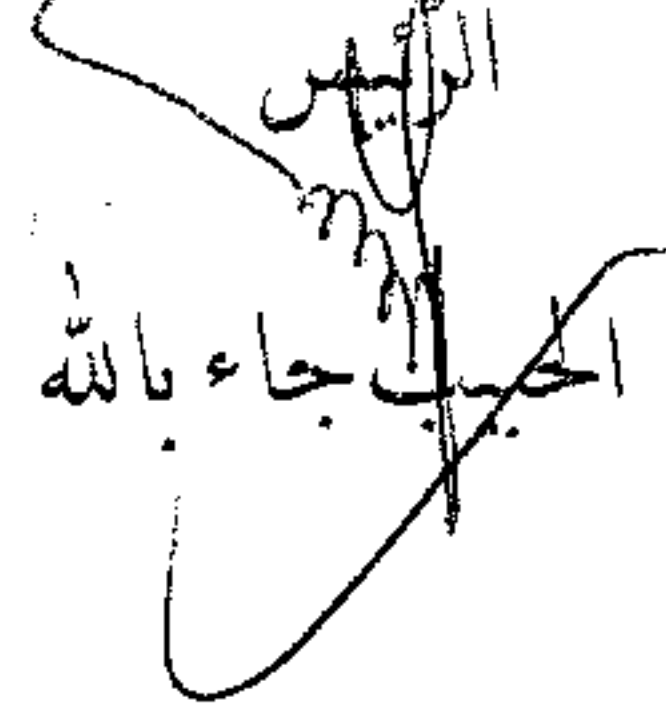 الرئيس
الحبيب جاء بالله